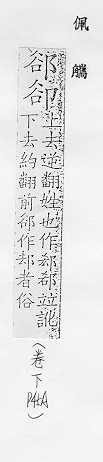 佩觿
郤卻
上去逆翻姓也作郄郄竝訛
下去約翻前卻作却者俗
(卷下 P44A)